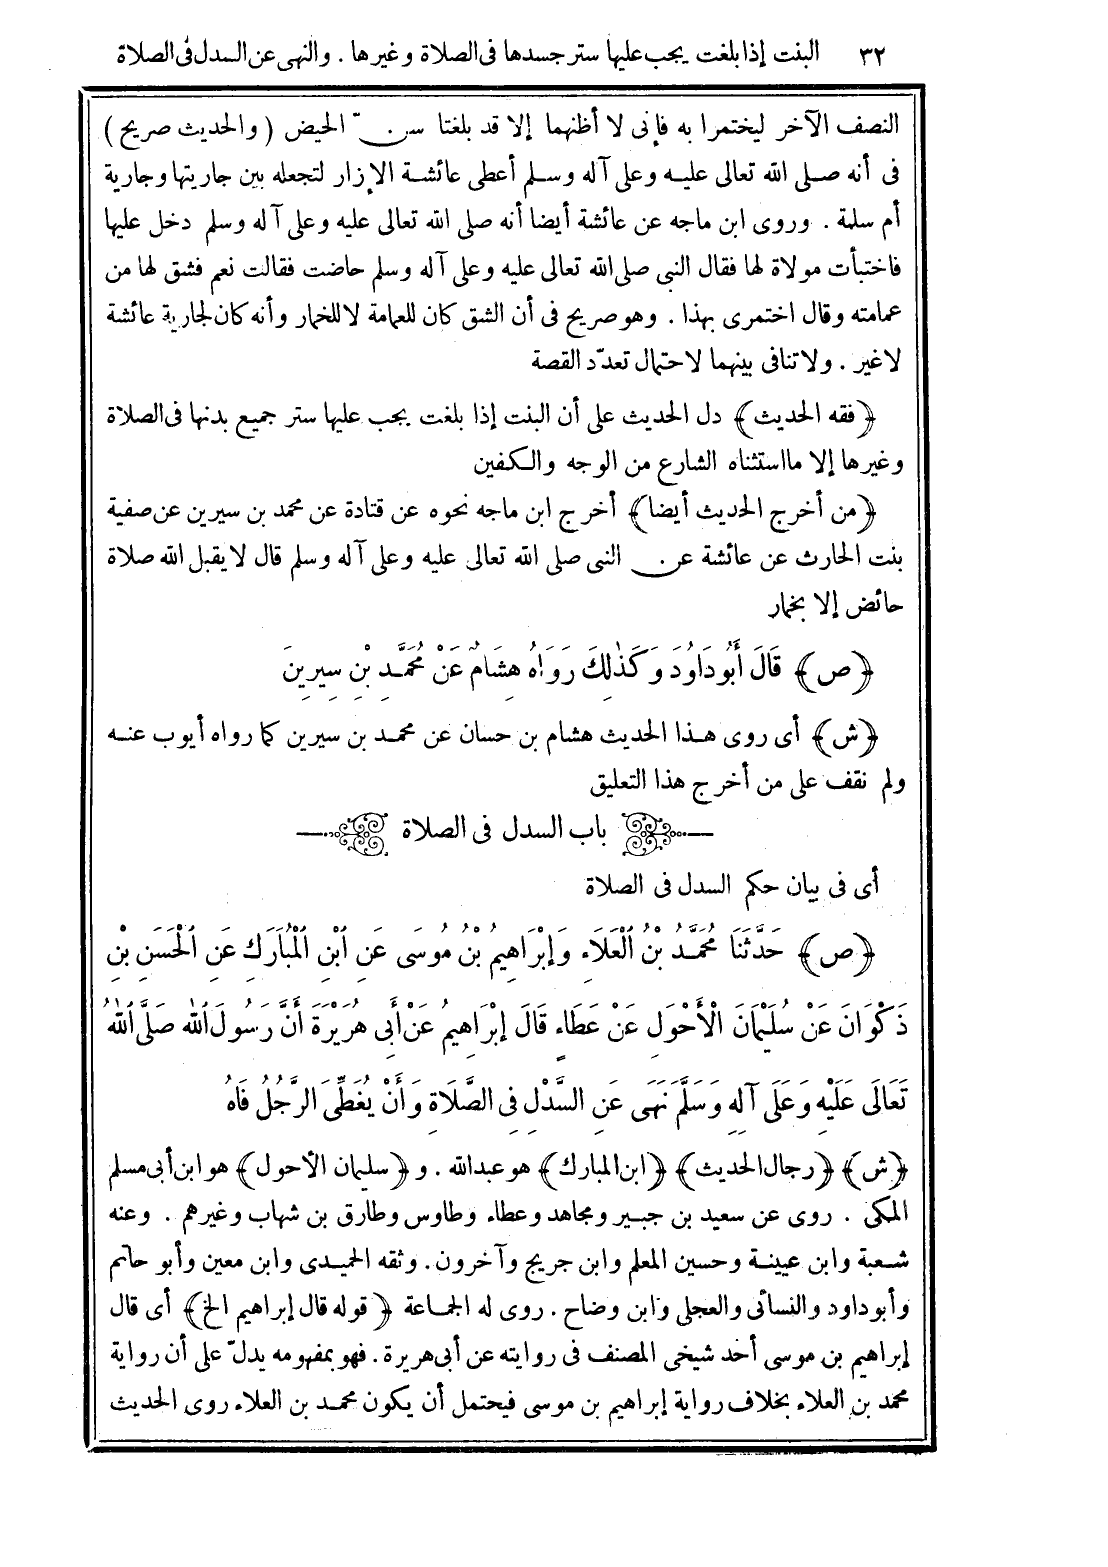 ٣٢ البنت إذا بلغت يجب عليها ستر جسدها فى الصلاة وغيرها . والنهى عن السدل فى الصلاة
النصف الآخر ليختمرا به فإنى لا أظنهما إلا قد بلغتا سن الحيض (والحديث صريح)
فى أنه صلى الله تعالى عليه وعلى آله وسلم أعطى عائشة الإزار لتجعله بين جاريتها وجارية
أم سلمة . وروى ابن ماجه عن عائشة أيضا أنه صلى الله تعالى عليه وعلى آله وسلم دخل عليها
فاختبأت مولاة لها فقال النبى صلى الله تعالى عليه وعلى آله وسلم حاضت فقالت نعم فشق لها من
عمامته وقال اختمرى بهذا . وهو صريح فى أن الشق كان للعمامة لا للخمار وأنه كان لجارية عائشة
لاغير . ولا تنافى بينهما لاحتمال تعدّد القصة
﴿فقه الحديث﴾ دل الحديث على أن البنت إذا بلغت يجب عليها ستر جميع بدنها فى الصلاة
وغيرها إلا ما استثناه الشارع من الوجه والكفين
﴿من أخرج الحديث أيضا﴾ أخرج ابن ماجه نحوه عن قتادة عن محمد بن سيرين عن صفية
بنت الحارث عن عائشة عن النبى صلى الله تعالى عليه وعلى آله وسلم قال لا يقبل الله صلاة
حائض إلا بخمار
﴿ص﴾ قَالَ أَبُو دَاوُدَ وَكَذٰلِكَ رَوَاهُ هِشَامٌ عَنْ مُحَمَّدِ بْنِ سِيرِينَ
﴿ش﴾ أى روى هذا الحديث هشام بن حسان عن محمد بن سيرين كما رواه أيوب عنه
ولم نقف على من أخرج هذا التعليق
باب السدل فى الصلاة
أى فى بيان حكم السدل فى الصلاة
﴿ص﴾ حَدَّثَنَا مُحَمَّدُ بْنُ الْعَلَاءِ وَإِبْرَاهِيمُ بْنُ مُوسَى عَنِ ابْنِ الْمُبَارَكِ عَنِ الْحَسَنِ بْنِ
ذَكْوَانَ عَنْ سُلَيْمَانَ الْأَحْوَلِ عَنْ عَطَاءٍ قَالَ إِبْرَاهِيمُ عَنْ أَبِى هُرَيْرَةَ أَنَّ رَسُولَ اللّٰهِ صَلَّى اللّٰهُ
تَعَالَى عَلَيْهِ وَعَلَى آلِهِ وَسَلَّمَ نَهَى عَنِ السَّدْلِ فِى الصَّلَاةِ وَأَنْ يُغَطِّىَ الرَّجُلُ فَاهُ
﴿ش﴾ ﴿رجال الحديث﴾ ﴿ابن المبارك﴾ هو عبدالله . و ﴿سليمان الأحول﴾ هو ابن أبى مسلم
المكى . روى عن سعيد بن جبير ومجاهد وعطاء وطاوس وطارق بن شهاب وغيرهم . وعنه
شعبة وابن عيينة وحسين المعلم وابن جريج وآخرون . وثقه الحميدى وابن معين وأبو حاتم
وأبو داود والنسائى والعجلى وابن وضاح . روى له الجماعة ﴿قوله قال إبراهيم الخ﴾ أى قال
إبراهيم بن موسى أحد شيخى المصنف فى روايته عن أبى هريرة . فهو بمفهومه يدلّ على أن رواية
محمد بن العلاء بخلاف رواية إبراهيم بن موسى فيحتمل أن يكون محمد بن العلاء روى الحديث